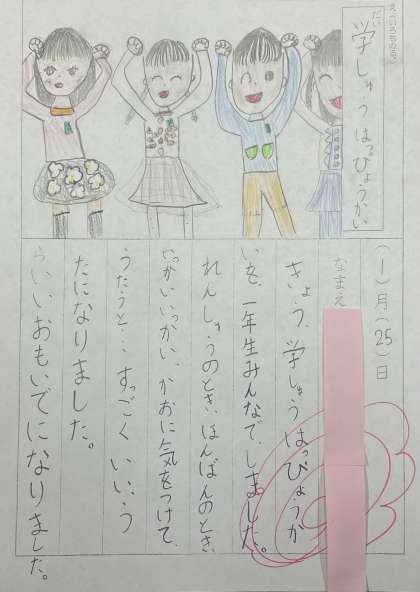 えをいろをぬる。
だい
学しゅうはっぴょうかい
(1)月(25)日
なまえ
きょう、学しゅうはっぴょうか
いを、一年生みんなで、しました。
れんしゅうのとき、ほんばんのとき
いっかいいっかい、かおに気をつけて、
うたうと…すっごくいいう
たになりました。
らいいおもいでになりました。